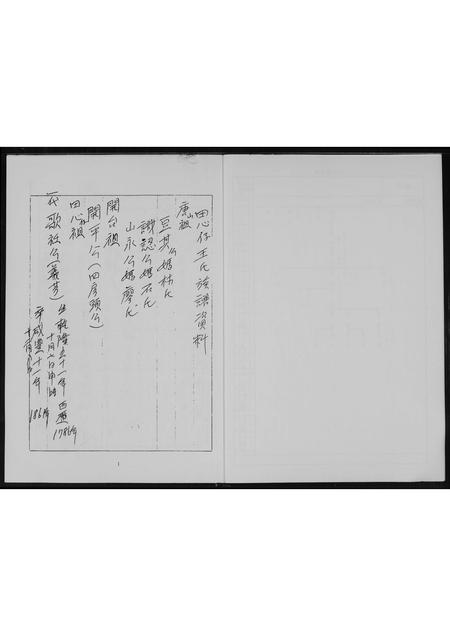 田心仔王氏族譜資料
唐山祖
亘其公媽林氏
謝認公媽石氏
山永公媽廖氏
開台祖
開平公(四房頭公)
田心祖
一代歌社公(義芳)生乾隆五十一年西歷1786年
十月七日申時
卒咸豐十一年1861年
1